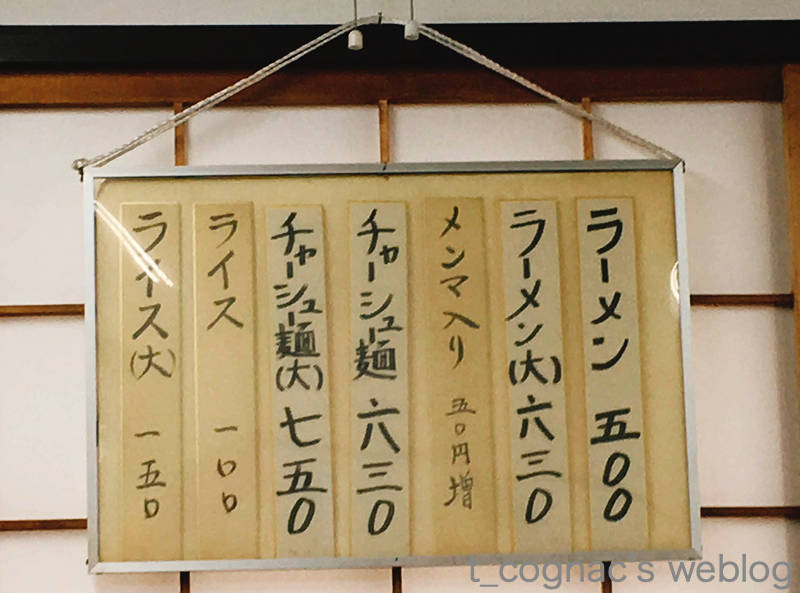 ラーメン 五〇〇
ラーメン(大) 六三〇
メンマ入り 五〇円増
チャーシュー麺 六三〇
チャーシュー麺(大) 七五〇
ライス 一〇〇
ライス(大) 一五〇
t_cognac's weblog